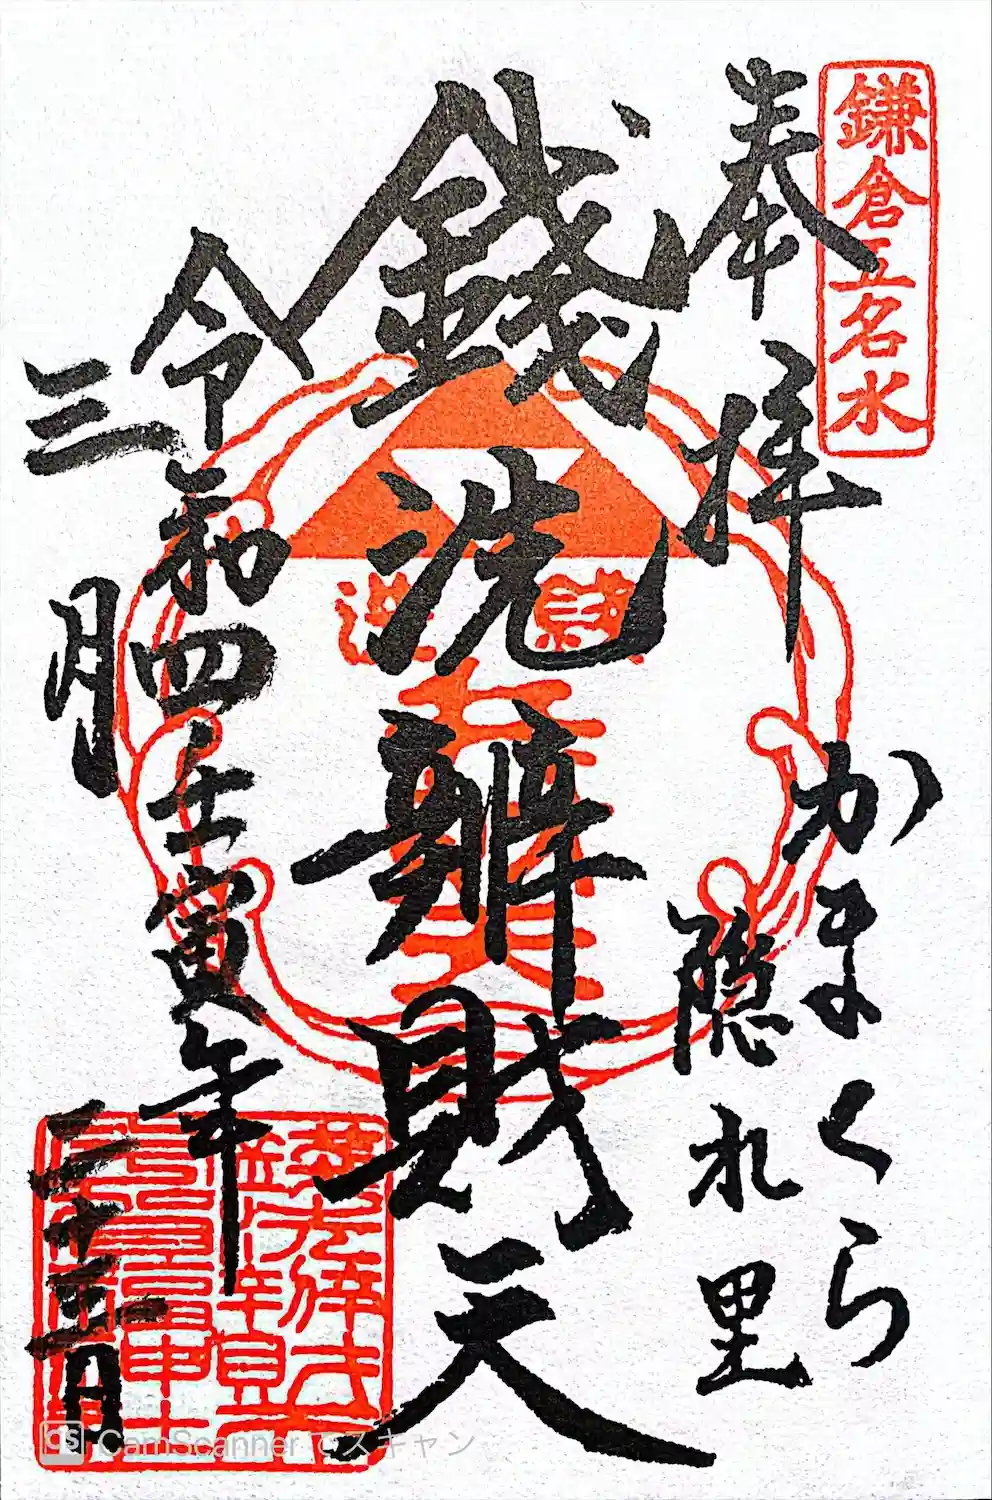 鎌倉五名水
奉拝
かまくら
隠れ里
銭洗辨財天
銭洗
令和四壬寅年
三月
二十三日
CamScanner でスキャン